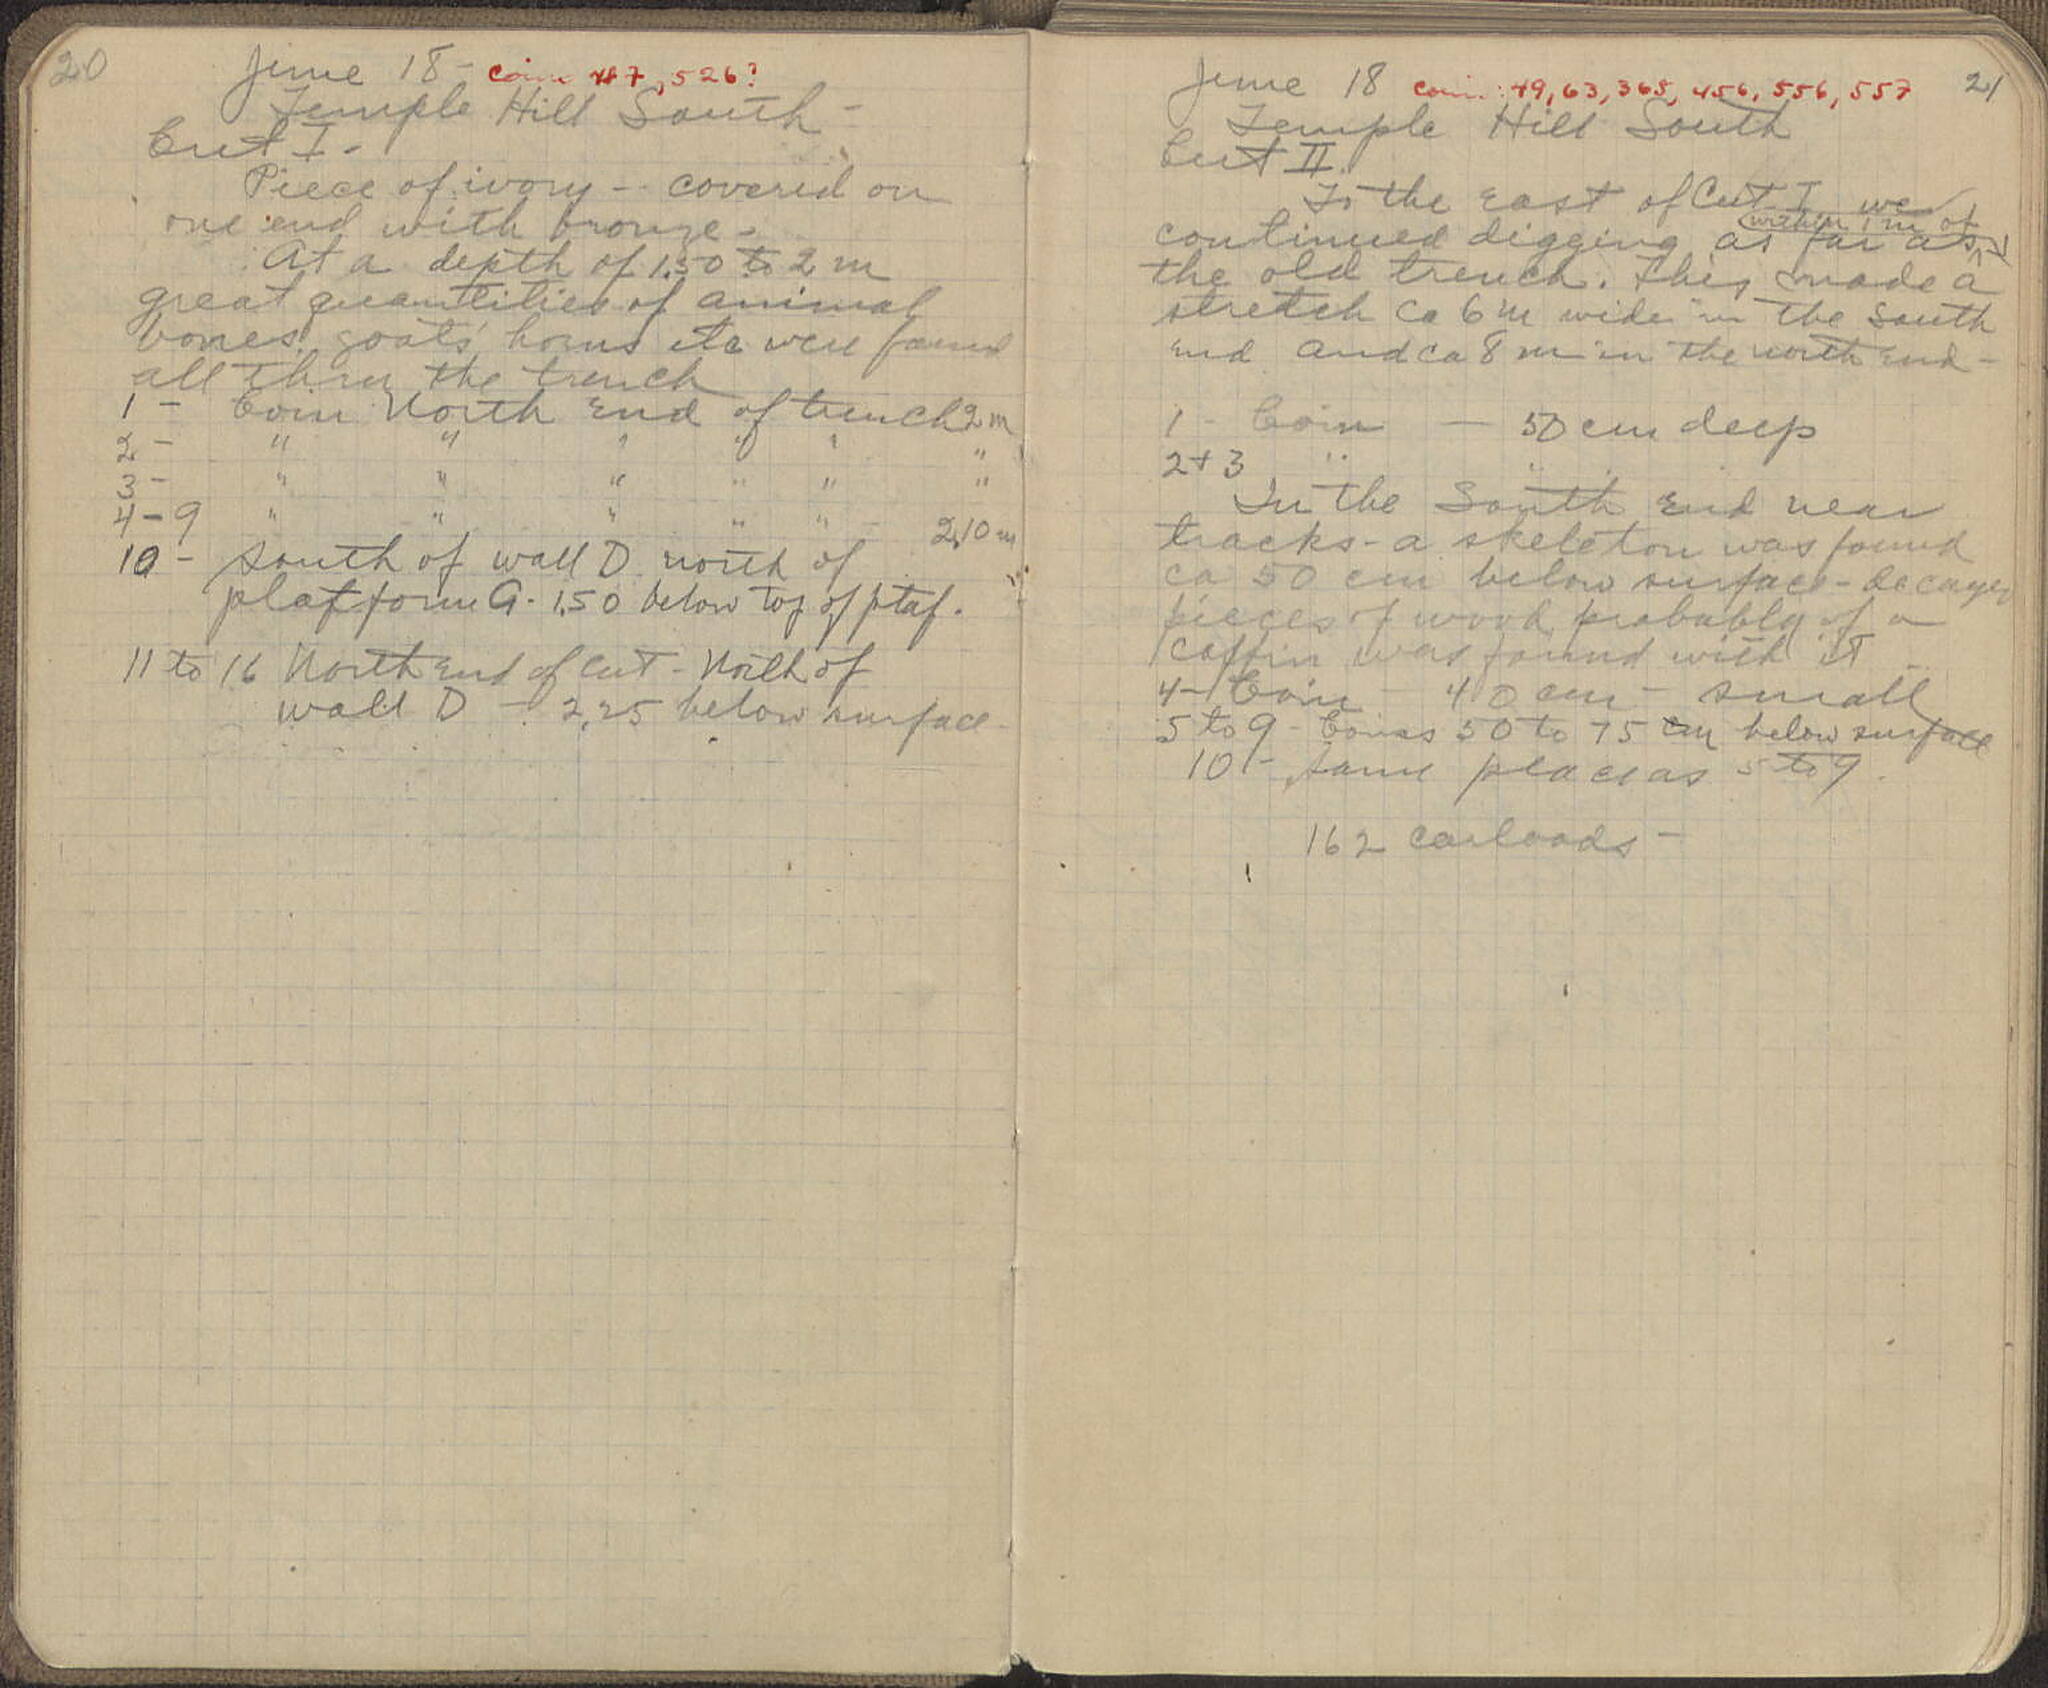 20
June 18 - coin 487, 526?
Temple Hill South -
Cut I -
Piece of ivory - covered on
one end with bronze -
At a depth of 1.50 to 2 m
great quantities of animal
bones, goats' horns etc were found
all thru the trench
1 - Coin North End of trench 2 m
2 - " " " " " "
3 - " " " " " "
4 - 9 " " " " " 2.10 m
10 - South of wall D north of
platform G - 1.50 below top of plat.
11 to 16 North End of Cut - North of
wall D - 2.25 below surface -
June 18 coin: 49, 63, 365, 456, 556, 557 21
Temple Hill South
Cut II.
To the east of Cut I we
within 1 m of
continued digging as far as
the old trench. This made a
stretch ca 6 m wide in the South
end and ca 8 m in the north end -
1 - Coin - 50 cm deep
2 + 3 " "
In the South End near
tracks - a skeleton was found
ca 50 cm below surface - decayed
pieces of wood probably of a
coffin was found with it -
4 - Coin - 40 cm - small
5 to 9 - Coins 50 to 75 cm below surface
10 - same place as 5 to 9.
162 carloads -